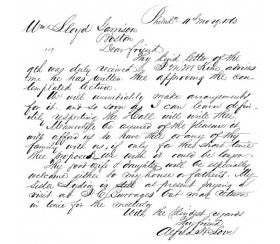 Philada 11 mo 19, 186
Wm Lloyd Garrison
Boston
Dear friend
Thy kind letter of the
9th was duly received & J M McKim advises
me he has written thee approving the con-
templated lecture
We will immediately make arrangements
for it, and so soon as I can learn defini-
tely respecting the Hall will write thee.
Meanwhile be assured of the pleasure it
will afford us to have thee or any of thy
family with us, if only for the short time
thee proposes. We wish it could be longer.
Thy good wife & daughter will be especially
welcome either to my house or father's. My
sister is still at present paying a
visit at but must return
in time for the meeting
With the kindest regards
Thy friend
Alfred H. Love